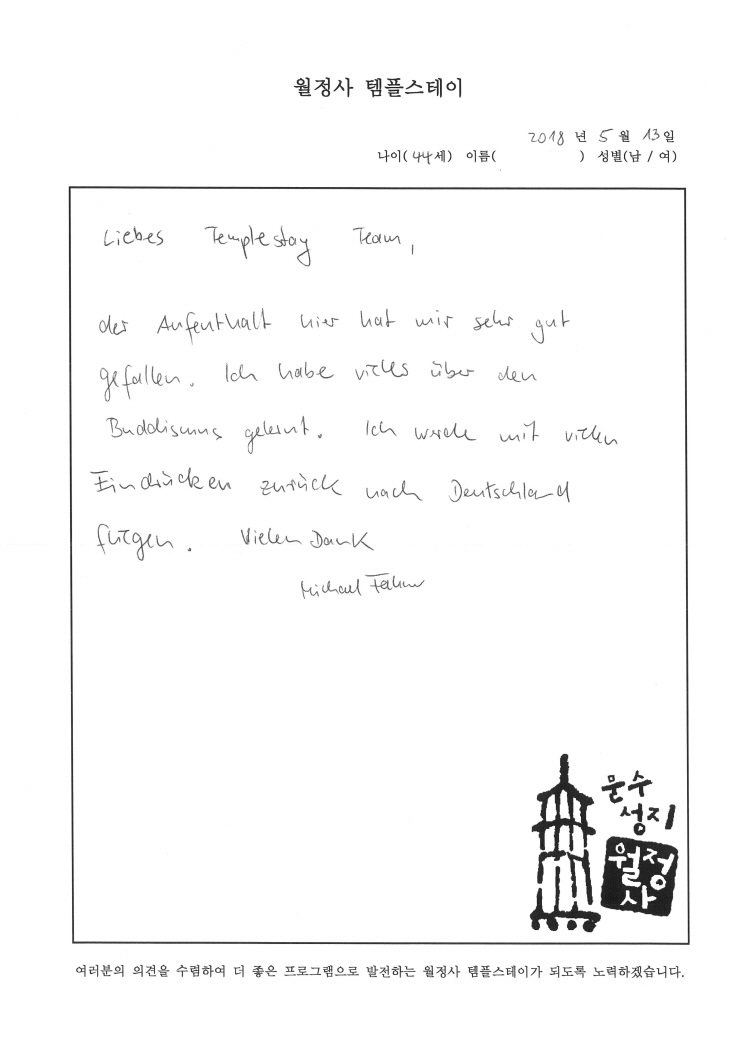 월정사 템플스테이
2018 년 5 월 13 일
나이( 44 세) 이름( ) 성별(남 / 여)
Liebes Templestay Team,
der Aufenthalt hier hat mir sehr gut
gefallen. Ich habe vieles über den
Buddismus gelernt. Ich werde mit vielen
Eindrücken zurück nach Deutschland
fliegen. Vielen Dank
Michael
문수
성지
월정
사
여러분의 의견을 수렴하여 더 좋은 프로그램으로 발전하는 월정사 템플스테이가 되도록 노력하겠습니다.